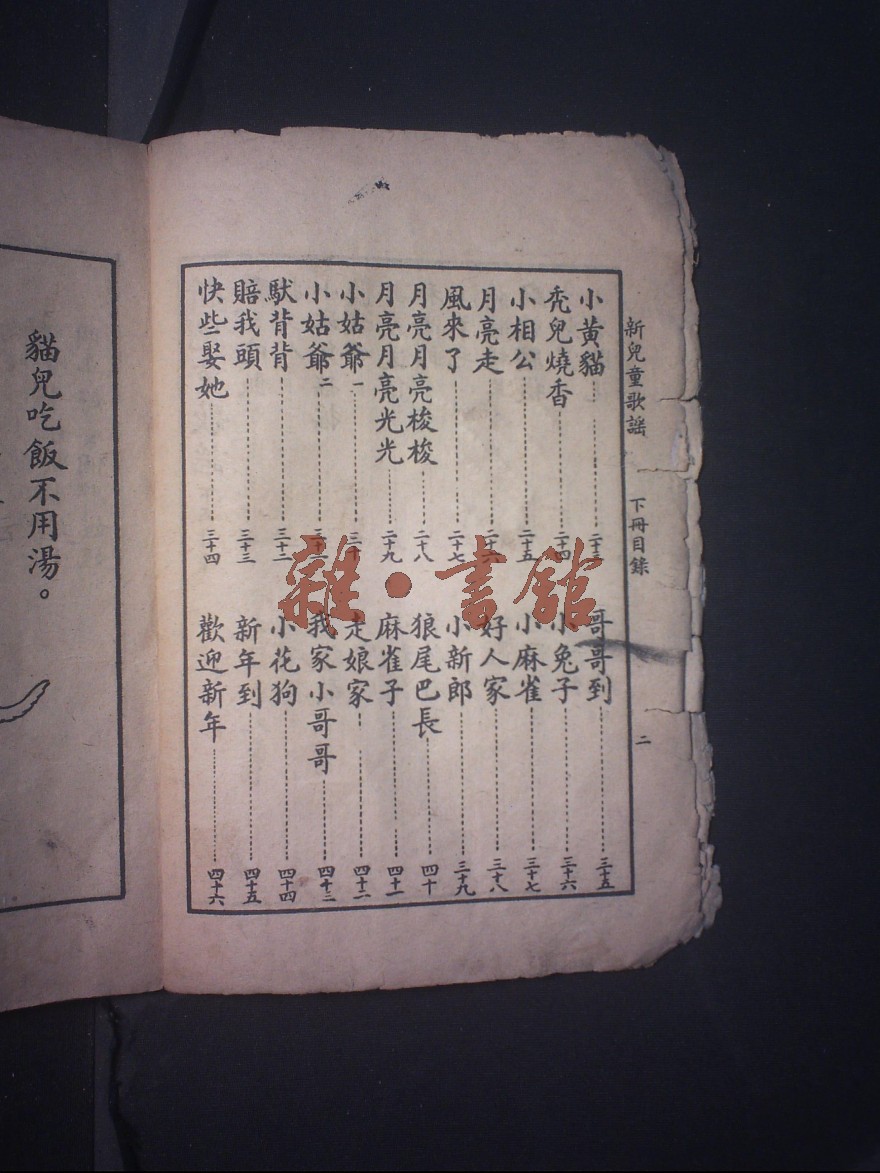 新兒童歌謠 下冊目錄 二
小黃貓 二十三
禿兒燒香 二十四
小相公 二十五
月亮走 二十六
風來了 二十七
月亮月亮梭梭 二十八
月亮月亮光光 二十九
小姑爺一 三十
小姑爺二 三十一
馱背背 三十二
賠我頭 三十三
快些娶她 三十四
哥哥到 三十五
小兔子 三十六
小麻雀 三十七
好人家 三十八
小新郎 三十九
狼尾巴長 四十
麻雀子 四十一
走娘家 四十二
我家小哥哥 四十三
小花狗 四十四
新年到 四十五
歡迎新年 四十六
貓兒吃飯不用湯。
雜·書館